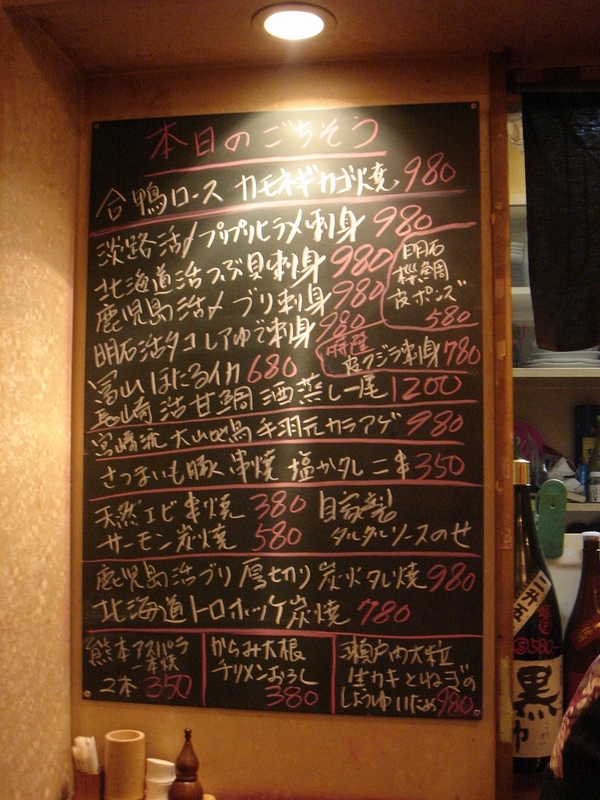 本日のごちそう
合鴨ロース カモネギカゴ焼 980
淡路活〆プリプリヒラメ刺身 980
北海道活つぶ貝刺身 980
鹿児島活〆ブリ刺身 980
明石活タコレアゆで刺身 980
明石
桜鯛
皮ポンズ
580
特産
皮クジラ刺身 780
富山ほたるイカ 680
長崎活甘鯛酒蒸し一尾 1200
宮崎流大山地鳥手羽元カラアゲ 980
さつまいも豚串焼 塩かタレ 二串 350
天然エビ串焼 380 自家製
サーモン炭焼 580 タルタルソースのせ
鹿児島活ブリ厚切り炭火タレ焼 980
北海道トロホッケ炭焼 780
熊本アスパラ
一本焼
2本 350
からみ大根
チリメンおろし
380
瀬戸内大粒
生カキとねぎの
しょうゆいため 980
580
黒